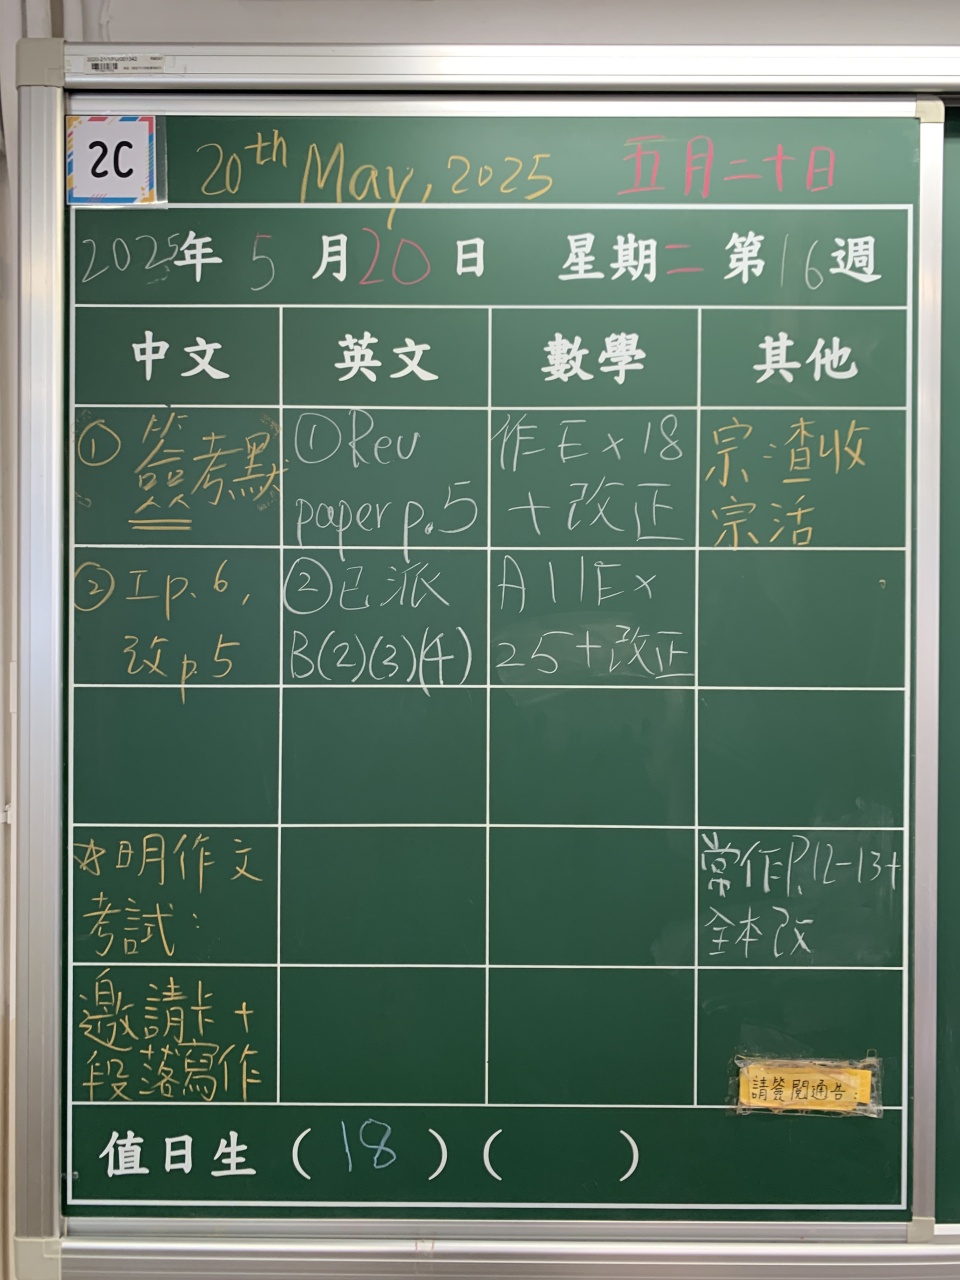 2C
20th May, 2025 五月二十日
2025年 5 月20日 星期二 第16週
中文 英文 數學 其他
① 簽考默
① Rev
paper p.5
作Ex 18
+改正
宗:查收
宗活
② 工p.6,
改p.5
② 已派
B(2)(3)(4)
A11Ex
25+改正
☆明作文
考試:
常作P.12-13+
全本改
邀請卡+
段落寫作
請簽閱通告:
值日生 ( 18 ) ( )